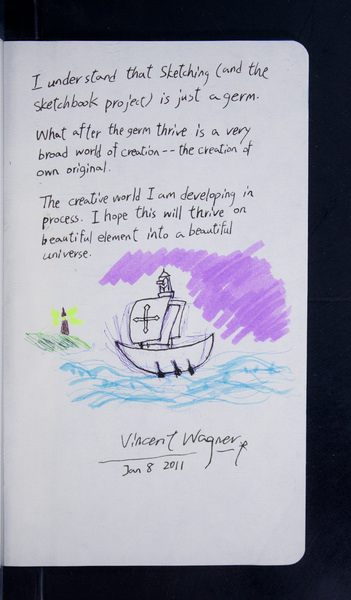 I understand that sketching (and the
sketchbook project) is just a germ.
What after the germ thrive is a very
broad world of creation -- the creation of
own original.
The creative world I am developing in
process. I hope this will thrive on
beautiful element into a beautiful
universe.
Vincent Wagner
Jan 8 2011